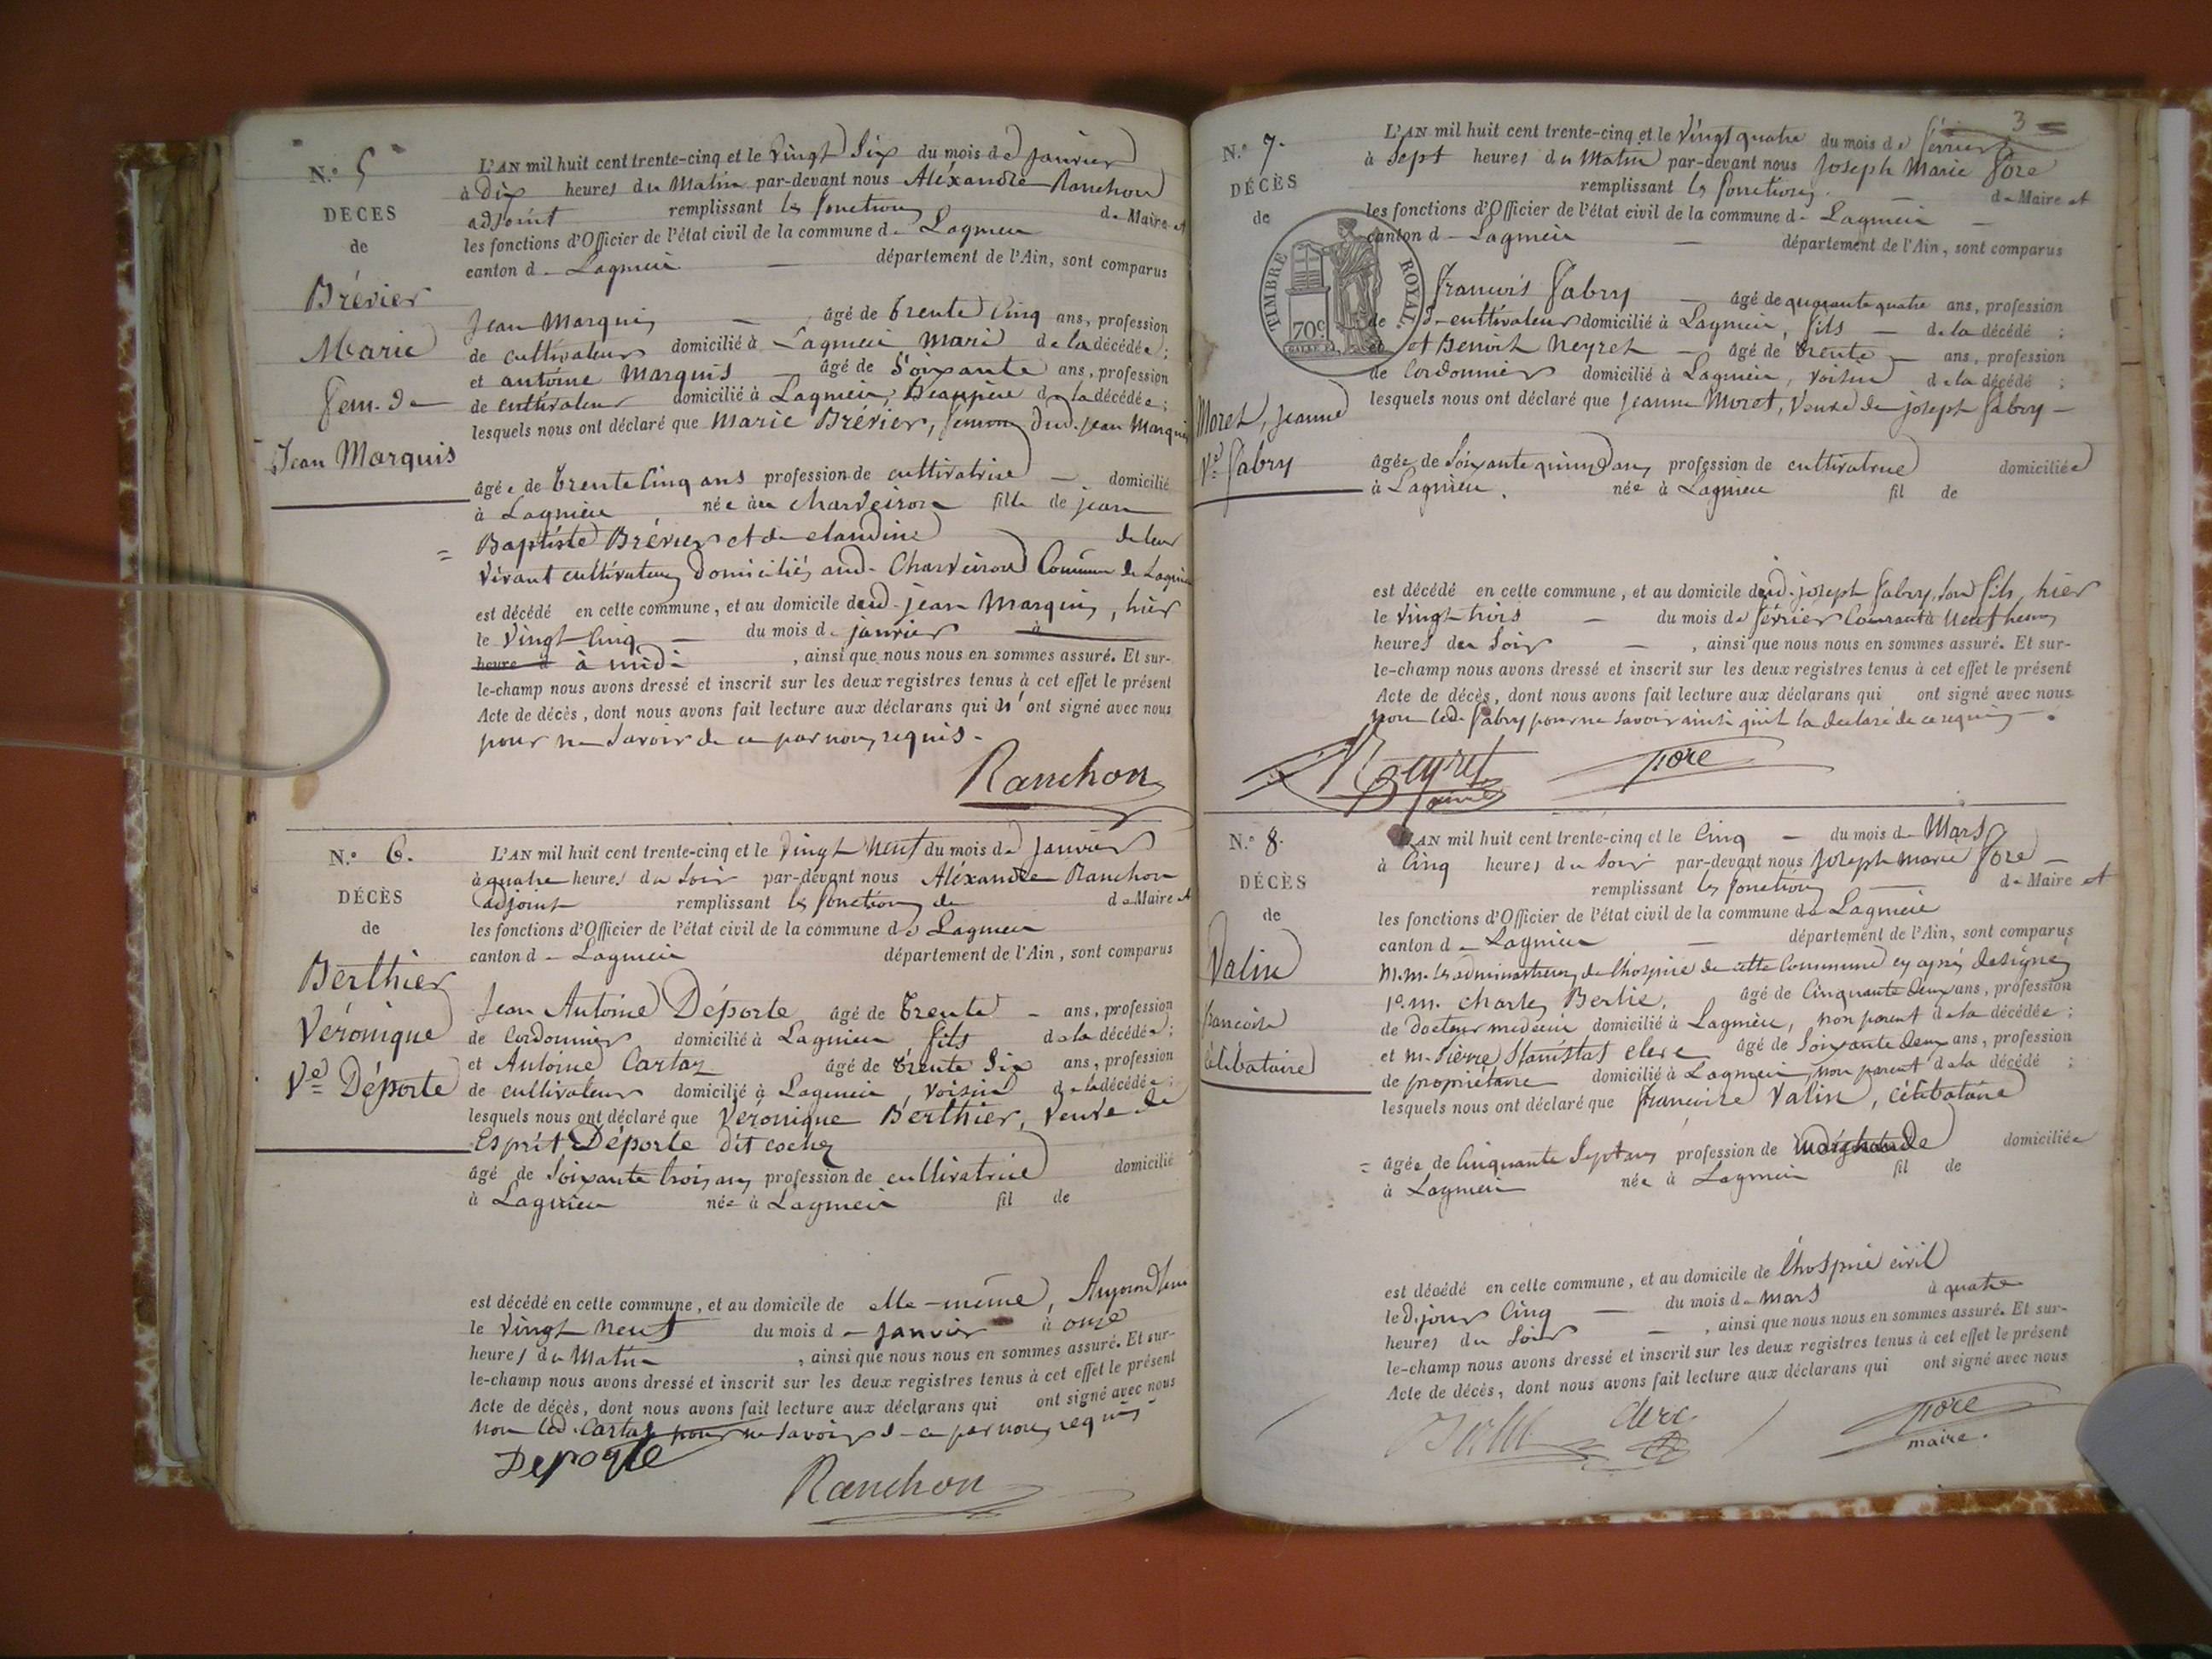 N.° 5
DECES
de
Brévier
Marie
fem. de
Jean Marquis
L'AN mil huit cent trente-cinq et le vingt six du mois de janvier
à dix heures du matin par-devant nous Aléxandre Ranchon
adjoint remplissant les fonctions de Maire et
les fonctions d'Officier de l'état civil de la commune de Lagnieu
canton de Lagnieu — département de l'Ain, sont comparus
Jean Marquis — âgé de trente cinq ans, profession
de cultivateur domicilié à Lagnieu mari de la décédée ;
et antoine Marquis — âgé de soixante ans, profession
de cultivateur domicilié à Lagnieu, beaupère de la décédée ;
lesquels nous ont déclaré que Marie Brévier, femme dud. jean Marquis
âgée de trente cinq ans profession de cultivatrice — domicilié
à Lagnieu née à Charveiron fille de jean
= Baptiste Brévier et de claudine de leur
vivant cultivateurs domiciliés aud. Charveiron Commune de Lagnieu
est décédé en cette commune, et au domicile dud. jean Marquis, hier
le vingt cinq — du mois de janvier à
heure d à midi , ainsi que nous nous en sommes assuré. Et sur-
le-champ nous avons dressé et inscrit sur les deux registres tenus à cet effet le présent
Acte de décès, dont nous avons fait lecture aux déclarans qui n'ont signé avec nous
pour ne savoir de ce par nous requis.
Ranchon
N.° 6.
DÉCÈS
de
Berthier
Véronique
Ve Déporte
L'AN mil huit cent trente-cinq et le vingt neuf du mois de janvier
à quatre heures du soir par-devant nous Aléxandre Ranchon
adjoint remplissant les fonctions de de Maire et
les fonctions d'Officier de l'état civil de la commune de Lagnieu
canton de Lagnieu département de l'Ain, sont comparus
Jean Antoine Déporte âgé de trente — ans, profession
de Cordonnier domicilié à Lagnieu fils de la décédée ;
et Antoine Cartaz âgé de trente six ans, profession
de cultivateur domicilié à Lagnieu, voisin de la décédée ;
lesquels nous ont déclaré que Véronique Berthier, veuve de
Esprit Déporte dit cochez
âgé de soixante trois ans profession de cultivatrice domicilié
à Lagnieu née à Lagnieu fil de
est décédé en cette commune, et au domicile de elle-même, Aujourd'hui
le vingt neuf du mois de janvier à onze
heures du matin , ainsi que nous nous en sommes assuré. Et sur-
le-champ nous avons dressé et inscrit sur les deux registres tenus à cet effet le présent
Acte de décès, dont nous avons fait lecture aux déclarans qui ont signé avec nous
non led. Cartaz pour ne savoir de ce par nous requis
Deporte
Ranchon
3
N.° 7.
DÉCÈS
de
TIMBRE ROYAL.
70c
Moret, Jeanne
Ve fabry
L'AN mil huit cent trente-cinq et le vingt quatre du mois de février
à sept heures du matin par-devant nous Joseph Marie Fore
remplissant les fonctions — de Maire et
les fonctions d'Officier de l'état civil de la commune de Lagnieu —
canton de Lagnieu — département de l'Ain, sont comparus
francois fabry — âgé de quarante quatre ans, profession
de d-cultivateur domicilié à Lagnieu, fils — de la décédé ;
et et Benoit Neyret — âgé de trente — ans, profession
de Cordonnier domicilié à Lagnieu, voisin de la décédé ;
lesquels nous ont déclaré que jeanne Moret, veuve de joseph fabry —
âgée de soixante quinze ans profession de cultivatrice domiciliée
à Lagnieu. née à Lagnieu fil de
est décédé en cette commune, et au domicile dud. joseph fabry, son fils, hier
le vingt trois — du mois de février Courant à neuf heures
heures du soir — , ainsi que nous nous en sommes assuré. Et sur-
le-champ nous avons dressé et inscrit sur les deux registres tenus à cet effet le présent
Acte de décès, dont nous avons fait lecture aux déclarans qui ont signé avec nous
non led. fabry pour ne savoir ainsi qu'il la declaré de ce requis.
Neyret
Fore
N.° 8.
DÉCÈS
de
Valin
francoise
Célibataire
L'AN mil huit cent trente-cinq et le Cinq — du mois de Mars
à Cinq heures du soir par-devant nous Joseph marie Fore —
remplissant les fonctions — de Maire et
les fonctions d'Officier de l'état civil de la commune de Lagnieu
canton de Lagnieu — département de l'Ain, sont comparus
M.m. les administrateurs de l'hospice de cette Commune cy après designés
1°. m. charles Berlie, âgé de Cinquante deux ans, profession
de docteur medecin domicilié à Lagnieu, non parent de la décédée ;
et m. Pierre Stanistas clerc âgé de soixante deux ans, profession
de propriétaire domicilié à Lagnieu, non parent de la décédé ;
lesquels nous ont déclaré que francoise Valin, célibataire
= âgée de Cinquante sept ans profession de marchande domiciliée
à Lagnieu née à Lagnieu fil de
est décédé en cette commune, et au domicile de l'hospice civil
le d. jour Cinq — du mois de mars à quatre
heures du soir — , ainsi que nous nous en sommes assuré. Et sur-
le-champ nous avons dressé et inscrit sur les deux registres tenus à cet effet le présent
Acte de décès, dont nous avons fait lecture aux déclarans qui ont signé avec nous
Clerc
Fore
maire.